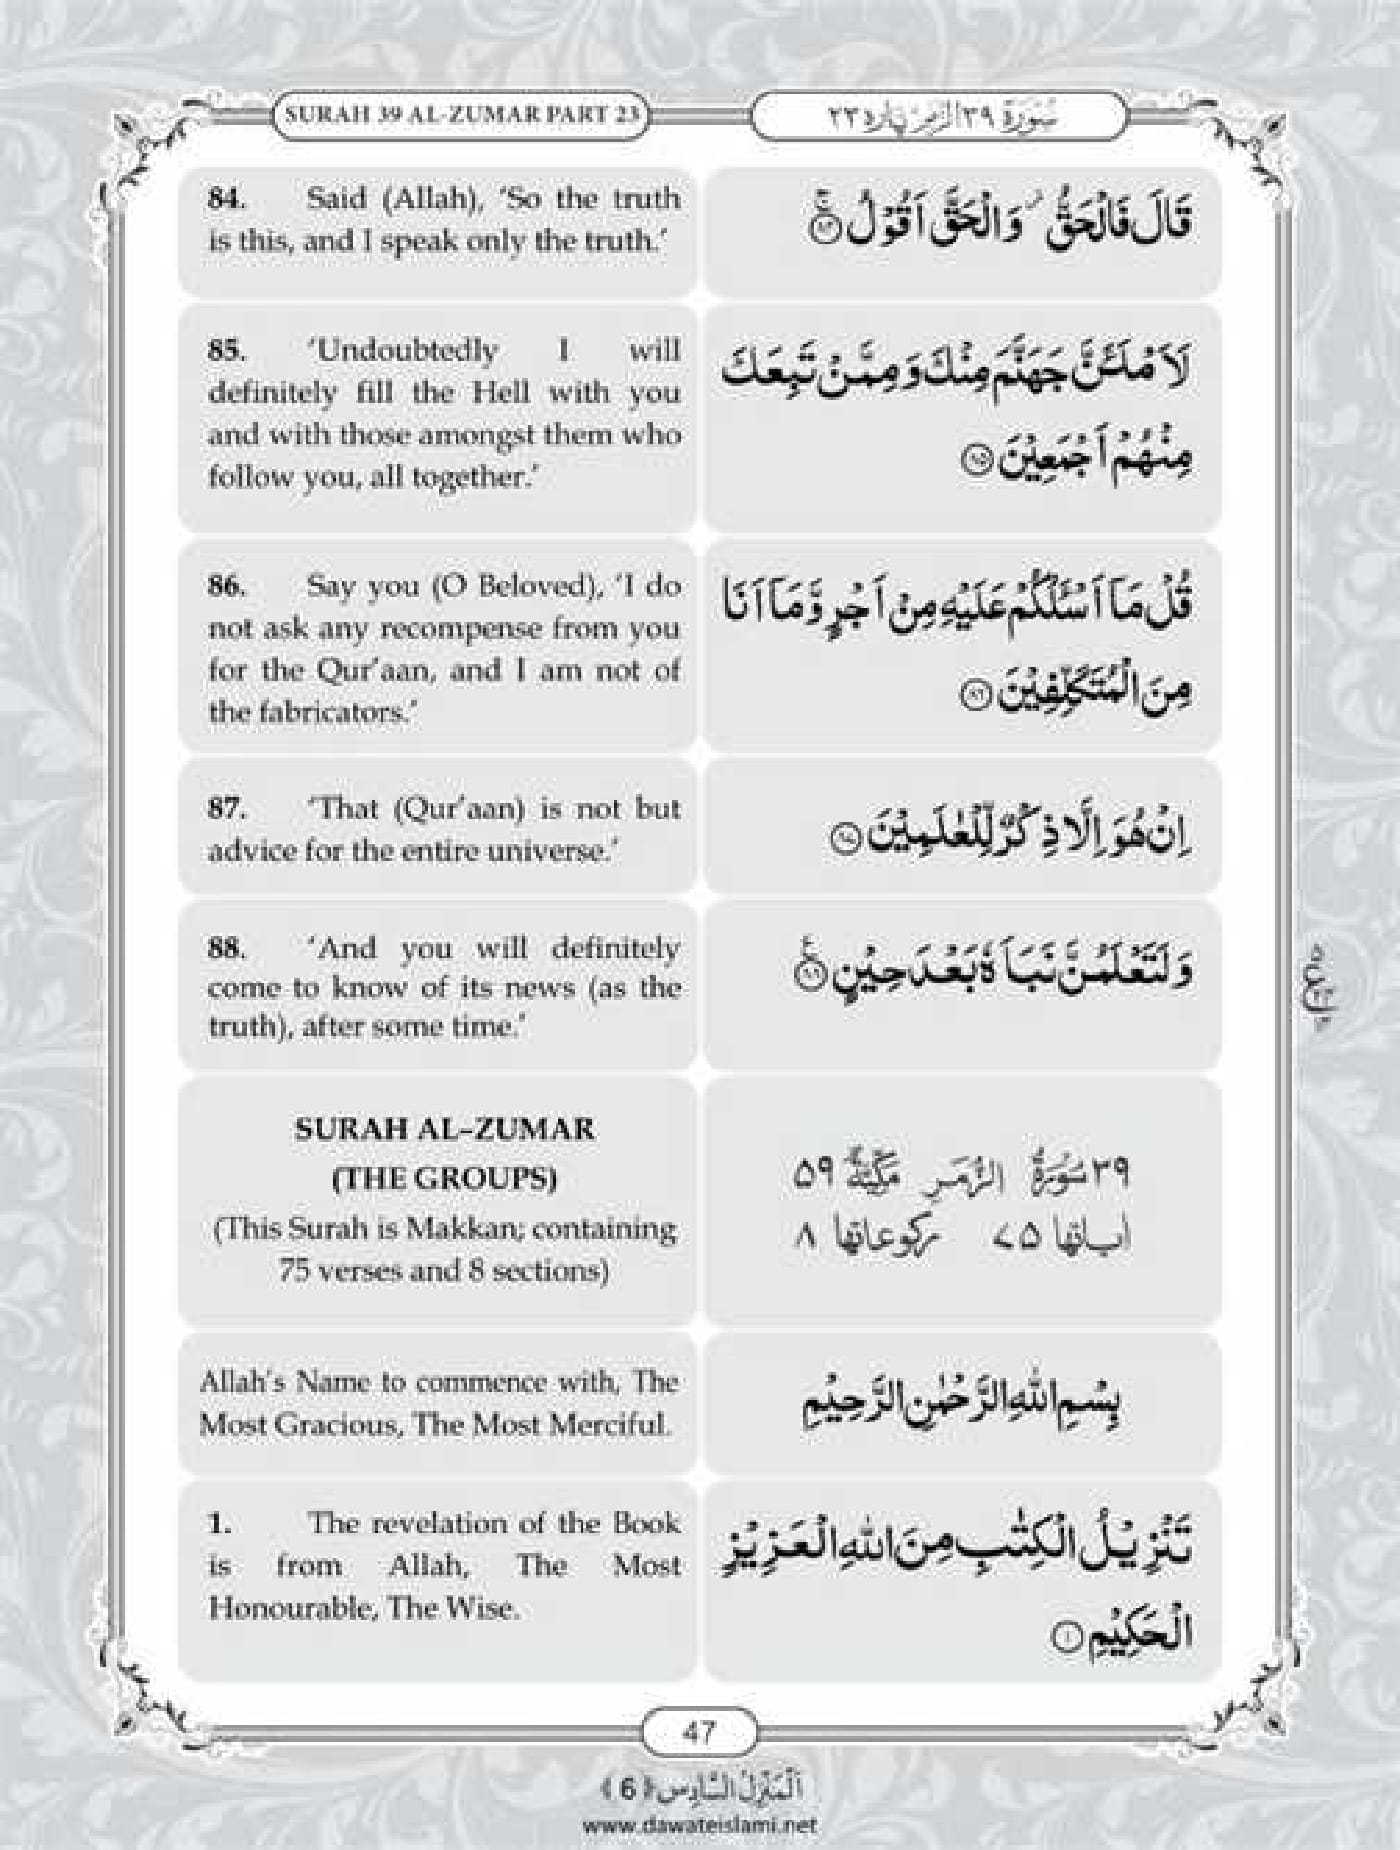 SURAH 39 AL-ZUMAR PART 23
سُوْرَة ٣٩ الزمر پاره ٢٣
84. Said (Allah), ‘So the truth
is this, and I speak only the truth.’
قَالَ فَالْحَقُّ ۫ وَالْحَقَّ اَقُوْلُ ۚ۝۸۴
85. ‘Undoubtedly I will
definitely fill the Hell with you
and with those amongst them who
follow you, all together.’
لَاَمْلَـَٔنَّ جَهَنَّمَ مِنْكَ وَمِمَّنْ تَبِعَكَ
مِنْهُمْ اَجْمَعِيْنَ ۝۸۵
86. Say you (O Beloved), ‘I do
not ask any recompense from you
for the Qur’aan, and I am not of
the fabricators.’
قُلْ مَاۤ اَسْـَٔلُكُمْ عَلَيْهِ مِنْ اَجْرٍ وَّمَاۤ اَنَا
مِنَ الْمُتَكَلِّفِيْنَ ۝۸۶
87. ‘That (Qur’aan) is not but
advice for the entire universe.’
اِنْ هُوَ اِلَّا ذِكْرٌ لِّلْعٰلَمِيْنَ ۝۸۷
88. ‘And you will definitely
come to know of its news (as the
truth), after some time.’
وَلَتَعْلَمُنَّ نَبَاَهٗ بَعْدَ حِيْنٍ ۝۸۸
SURAH AL–ZUMAR
(THE GROUPS)
(This Surah is Makkan; containing
75 verses and 8 sections)
٣٩ سُوْرَةُ الزُّمَرِ مَكِّيَّةٌ ۵۹
اٰیاتها ۷۵ رکوعاتها ۸
Allah’s Name to commence with, The
Most Gracious, The Most Merciful.
بِسْمِ اللهِ الرَّحْمٰنِ الرَّحِيْمِ
1. The revelation of the Book
is from Allah, The Most
Honourable, The Wise.
تَنْزِيْلُ الْكِتٰبِ مِنَ اللهِ الْعَزِيْزِ
الْحَكِيْمِ ۝۱
47
اَلْمَنْزِلُ السَّادِس ﴿6﴾
www.dawateislami.net